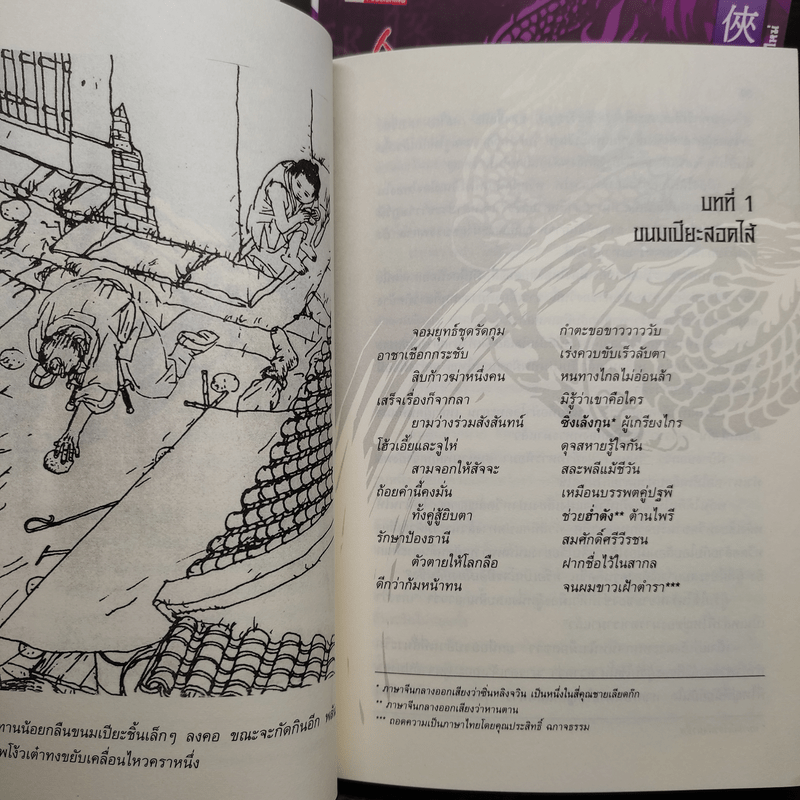 俠
ใหม่
ทานน้อยกลืนขนมเปียะชิ้นเล็กๆ ลงคอ ขณะจะกัดกินอีก
พโง้วเต๋าทงขยับเคลื่อนไหวคราหนึ่ง
บทที่ 1
ขนมเปียะสอดไส้
จอมยุทธ์ชุดรัดกุม กำตะขอขาววาววับ
อาชาเชือกกระชับ เร่งควบขับเร็วลับตา
สิบก้าวฆ่าหนึ่งคน หนทางไกลไม่อ่อนล้า
เสร็จเรื่องก็จากลา มิรู้ว่าเขาคือใคร
ยามว่างร่วมสังสันทน์ ซิ่งเล้งกุน* ผู้เกรียงไกร
โฮ้วเอี้ยและจูไห่ ดุจสหายรู้ใจกัน
สามจอกให้สัจจะ สละพลีแม้ชีวัน
ถ้อยคำนี้คงมั่น เหมือนบรรพตคู่ปฐพี
ทั้งคู่สู้ยิบตา ช่วยฮ่ำตัง** ต้านไพรี
รักษาป้องธานี สมศักดิ์ศรีวีรชน
ตัวตายให้โลกลือ ฝากชื่อไว้ในสากล
ดีกว่าก้มหน้าทน จนผมขาวเฝ้าตำรา***
* ภาษาจีนกลางออกเสียงว่าซิ่นหลิงจวิน เป็นหนึ่งในสี่คุณชายเลียดก๊ก
** ภาษาจีนกลางออกเสียงว่าหานตาน
*** ถอดความเป็นภาษาไทยโดยคุณประสิทธิ์ ฉกาจธรรม